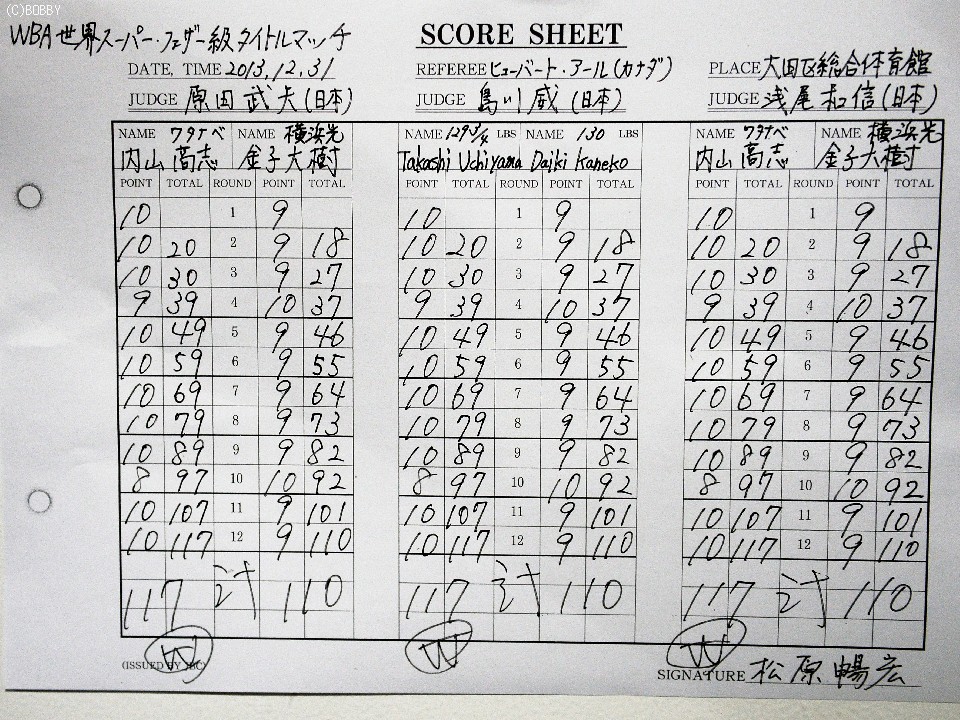 (C)BOBBY
WBA世界スーパー・フェザー級タイトルマッチ
SCORE SHEET
DATE, TIME 2013.12.31 REFEREE ヒューバート・アール(カナダ) PLACE 大田区総合体育館
JUDGE 原田武夫(日本) JUDGE 島川威(日本) JUDGE 浅尾和信(日本)
NAME ワタナベ NAME 横浜光 NAME 129 3/4 LBS NAME 130 LBS NAME ワタナベ NAME 横浜光
内山高志 金子大樹 Takashi Uchiyama Daiki Kaneko 内山高志 金子大樹
POINT TOTAL ROUND POINT TOTAL POINT TOTAL ROUND POINT TOTAL POINT TOTAL ROUND POINT TOTAL
10 1 9 10 1 9 10 1 9
10 20 2 9 18 10 20 2 9 18 10 20 2 9 18
10 30 3 9 27 10 30 3 9 27 10 30 3 9 27
9 39 4 10 37 9 39 4 10 37 9 39 4 10 37
10 49 5 9 46 10 49 5 9 46 10 49 5 9 46
10 59 6 9 55 10 59 6 9 55 10 59 6 9 55
10 69 7 9 64 10 69 7 9 64 10 69 7 9 64
10 79 8 9 73 10 79 8 9 73 10 79 8 9 73
10 89 9 9 82 10 89 9 9 82 10 89 9 9 82
8 97 10 10 92 8 97 10 10 92 8 97 10 10 92
10 107 11 9 101 10 107 11 9 101 10 107 11 9 101
10 117 12 9 110 10 117 12 9 110 10 117 12 9 110
117 計 110 117 計 110 117 計 110
W W W
(ISSUED BY JBC) SIGNATURE 松原暢宏